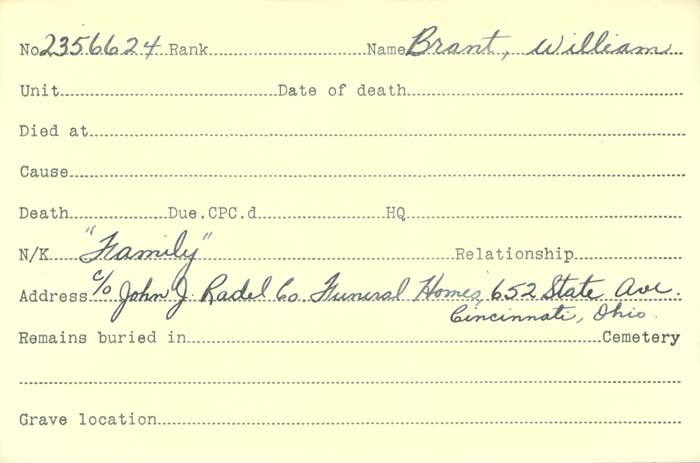 No 2356624 Rank Name Brant, William
Unit Date of death
Died at
Cause
Death Due.CPC.d HQ
N/K "Family" Relationship
Address c/o John J. Radel Co. Funeral Homes, 652 State Ave.
Cincinnati, Ohio.
Remains buried in Cemetery
Grave location